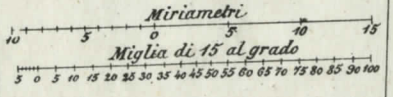 Miriametri
10 5 0 5 10 15
Miglia di 15 al grado
5 0 5 10 15 20 25 30 35 40 45 50 55 60 65 70 75 80 85 90 100